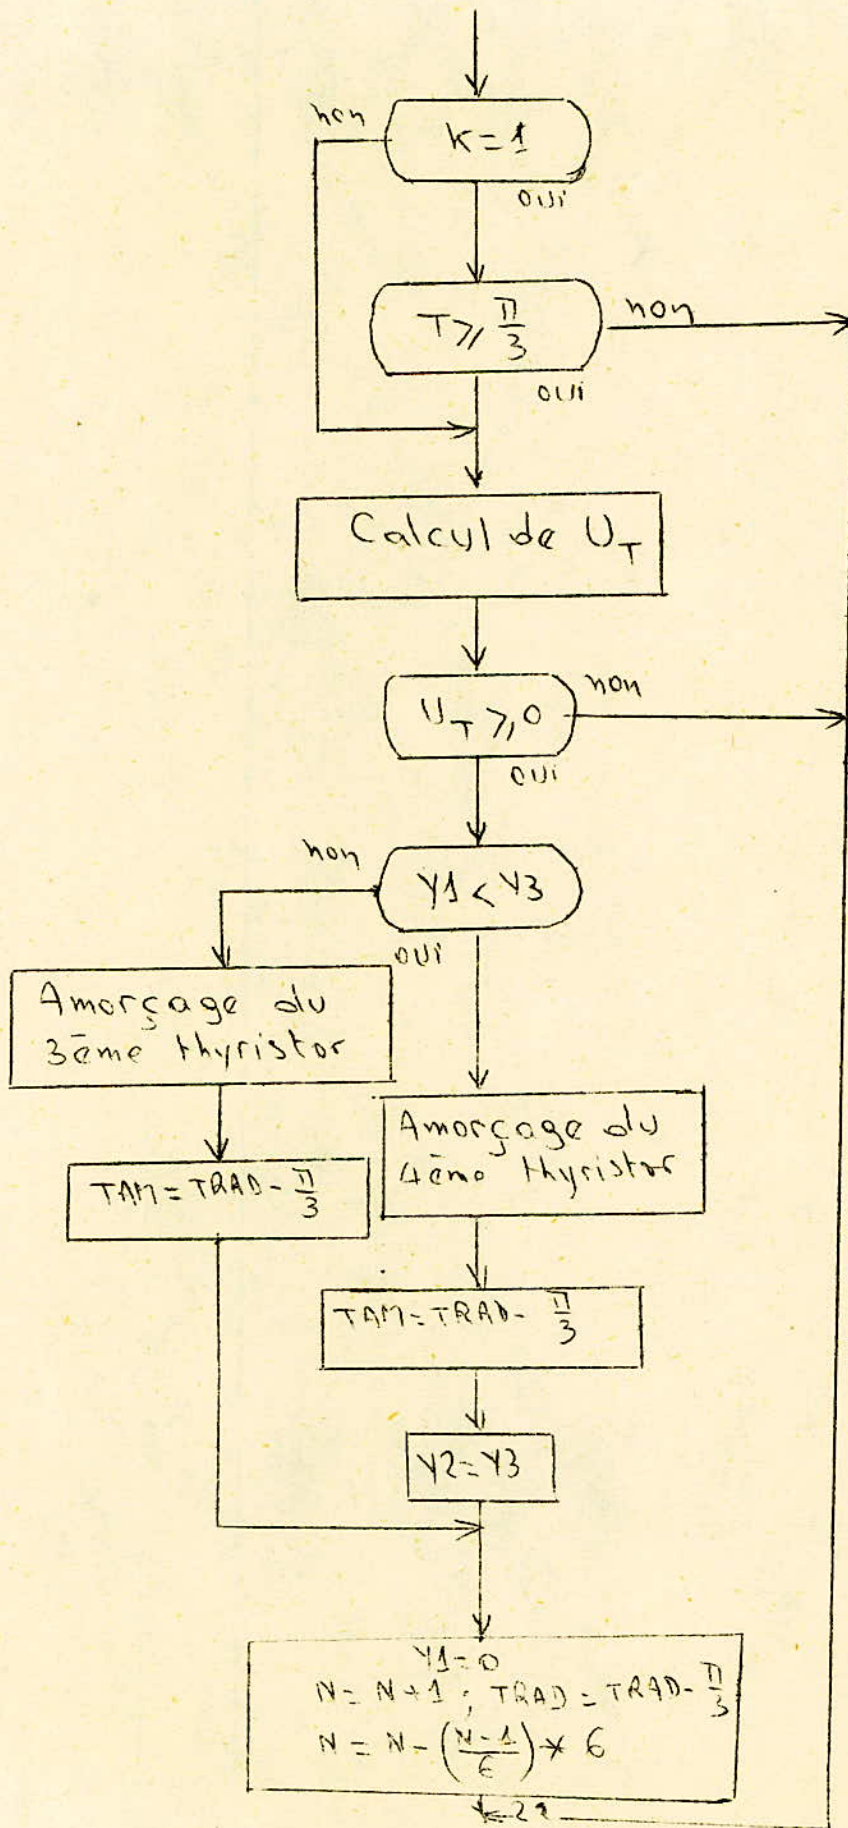 non
K=1
oui
T ⩾ π/3
non
oui
Calcul de U_T
U_T ⩾ 0
non
oui
non
Y1 < Y3
oui
Amorçage du
3ème thyristor
Amorçage du
4ème thyristor
TAM = TRAD - π/3
TAM = TRAD - π/3
Y2 = Y3
Y1 = 0
N = N+1 ; TRAD = TRAD - π/3
N = N - (N-1/6) * 6